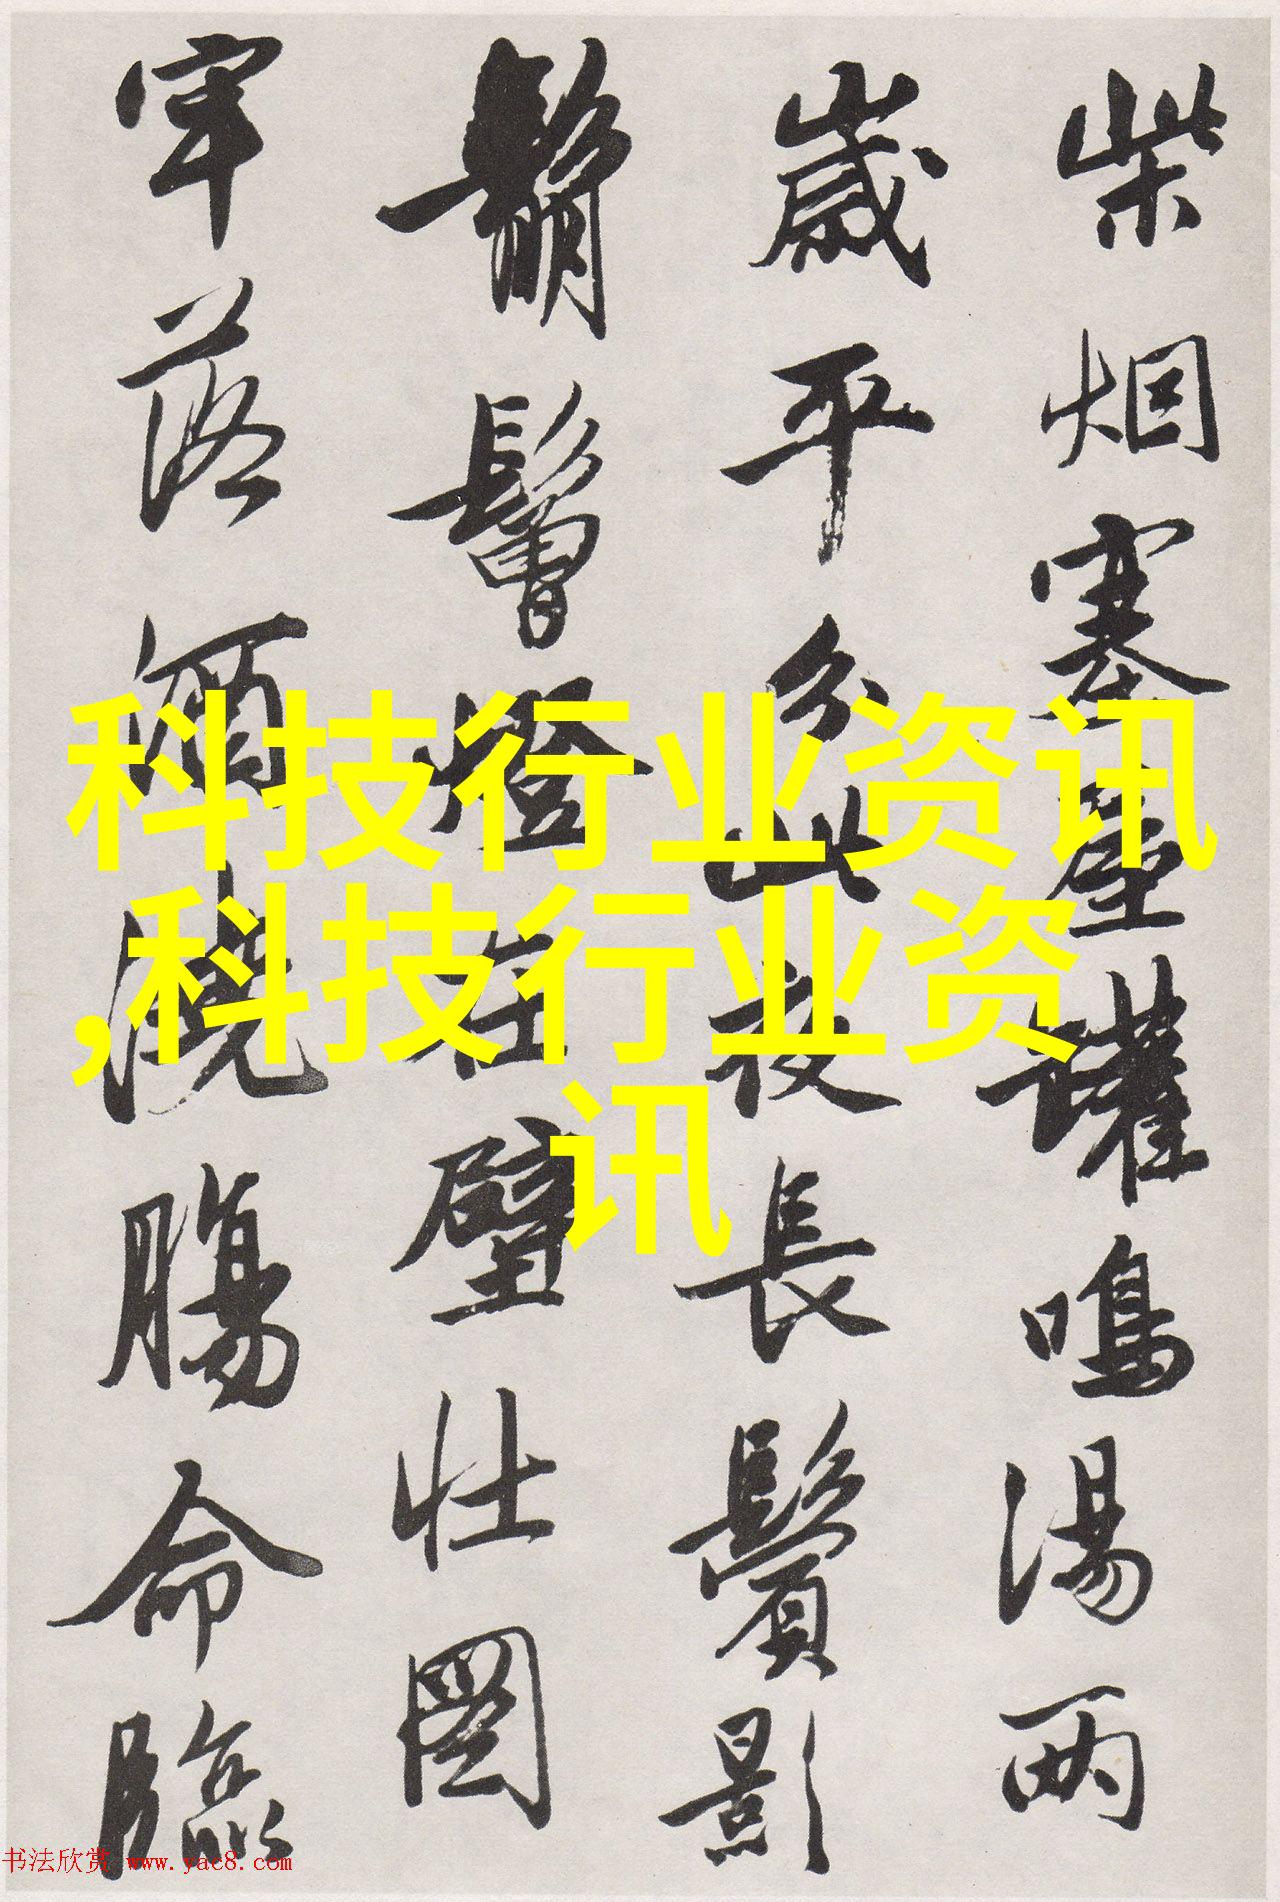 柴烟塞壁罐鳴湯兩
歲平分此夜長鬢影
鬅鬙燈在壁壯圖
牢落酒澆腸命臨
科技行业资讯
,科技行业资
讯
书法欣赏 www.yac8.com